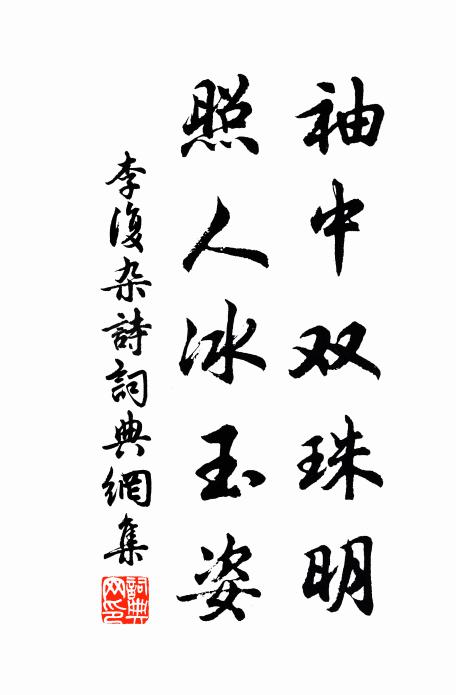 袖中双珠明
照人冰玉姿
李復杂詩詞典網集
詞典
网印